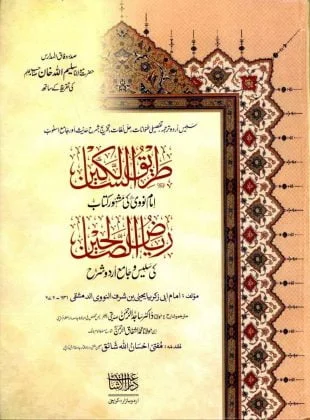 صدر وفاق المدارس
حضرت مولانا سلیم اللہ خان
کی تقریظ کے ساتھ
سلیس اردو ترجمہ، تفصیلی عنوانات، حل لغات، تخریج، شرح حدیث اور جامع اسلوب
طریق السالکین
امام نووی کی مشہور کتاب
ریاض الصالحین
کی سلیس و جامع اردو شرح
مؤلف: امام ابی زکریا یحییٰ بن شرف النووی الدمشقی ۶۳۱-۶۷۶
ڈاکٹر ساجد الرحمٰن صدیقی
مولانا محمد
مقدمہ: مفتی احسان اللہ شائق
دار الاشاعت
اردو بازار کراچی